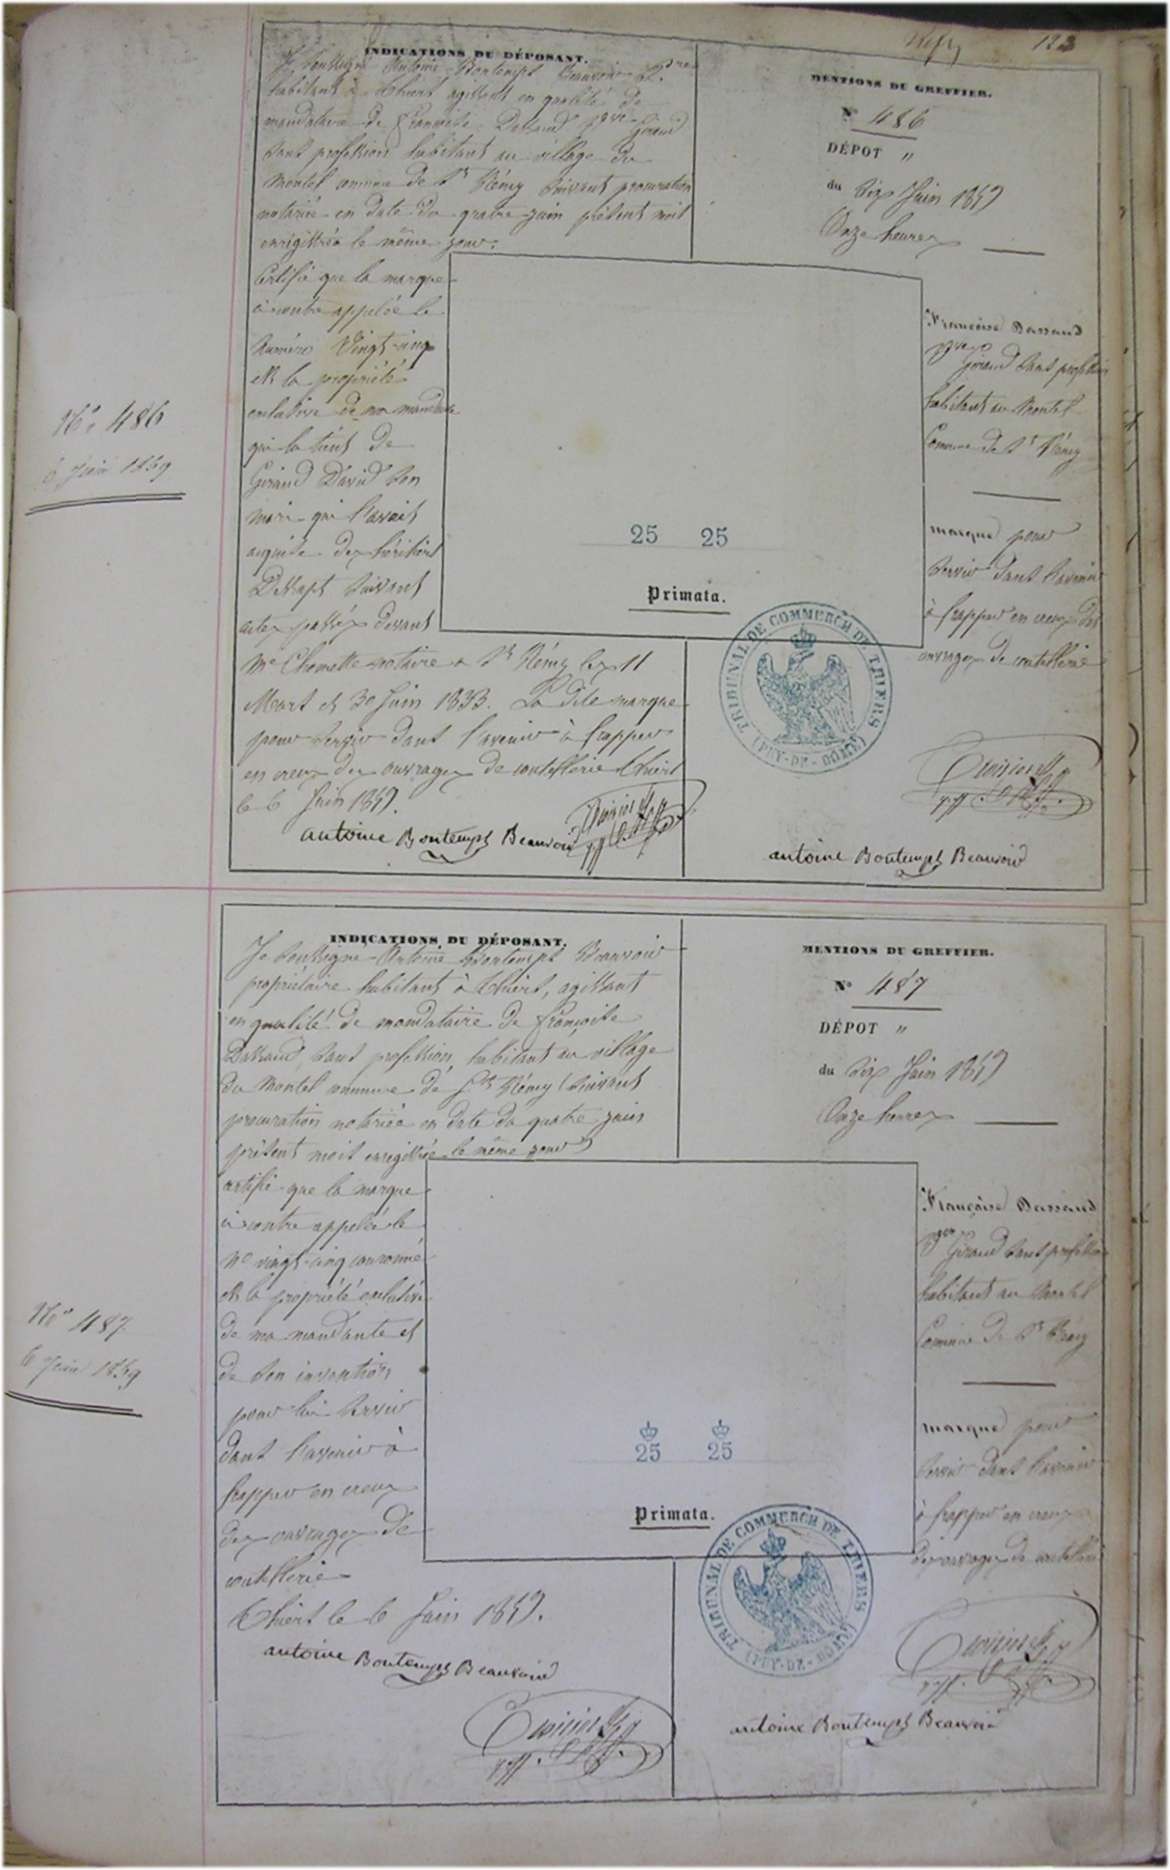 123
INDICATIONS DU DÉPOSANT.
Je soussigné Antoine Bontemps Beauvoir
habitant à Thiers agissant en qualité de
mandataire de Françoise Dassaud Giraud
sans profession habitant au village du
Montel commune de St Rémy suivant procuration
notariée en date du quatre juin présent mois
enregistrée le même jour.
Certifie que la marque
ci contre appelée le
numéro Vingt-cinq
est la propriété
exclusive de ma mandante
qui la tient de
Giraud David son
mari qui l'avait
acquise des héritiers
suivant
actes passés devant
Me Chomette notaire à St Rémy les 11
Mars et 30 Juin 1833. La dite marque
pour servir dans l'avenir à frapper
en creux des ouvrages de coutellerie Thiers
le 6 Juin 1859.
antoine Bontemps Beauvoir
MENTIONS DU GREFFIER.
No 486
DÉPOT "
du Six Juin 1859
Onze heures
Françoise Dassaud
Giraud sans profession
habitant au Montel
Commune de St Rémy
marque pour
servir dans l'avenir
à frapper en creux des
ouvrages de coutellerie
antoine Bontemps Beauvoir
No 486
6 Juin 1859
25 25
Primata.
TRIBUNAL DE COMMERCE DE THIERS
(PUY-DE-DOME)
INDICATIONS DU DÉPOSANT.
Je soussigné Antoine Bontemps Beauvoir
propriétaire habitant à Thiers, agissant
en qualité de mandataire de Françoise
Dassaud, sans profession, habitant au village
du Montel commune de St Rémy suivant
procuration notariée en date du quatre juin
présent mois enregistrée le même jour
certifie que la marque
ci contre appelée le
No vingt-cinq couronné
est la propriété exclusive
de ma mandante et
de son invention
pour lui servir
dans l'avenir à
frapper en creux
des ouvrages de
coutellerie
Thiers le 6 Juin 1859.
antoine Bontemps Beauvoir
MENTIONS DU GREFFIER.
No 487
DÉPOT "
du Six Juin 1859
Onze heures
Françoise Dassaud
Giraud sans profession
habitant au Montel
Commune de St Rémy
marque pour
servir dans l'avenir
à frapper en creux
des ouvrages de coutellerie
antoine Bontemps Beauvoir
No 487
6 Juin 1859
25 25
Primata.
TRIBUNAL DE COMMERCE DE THIERS
(PUY-DE-DOME)